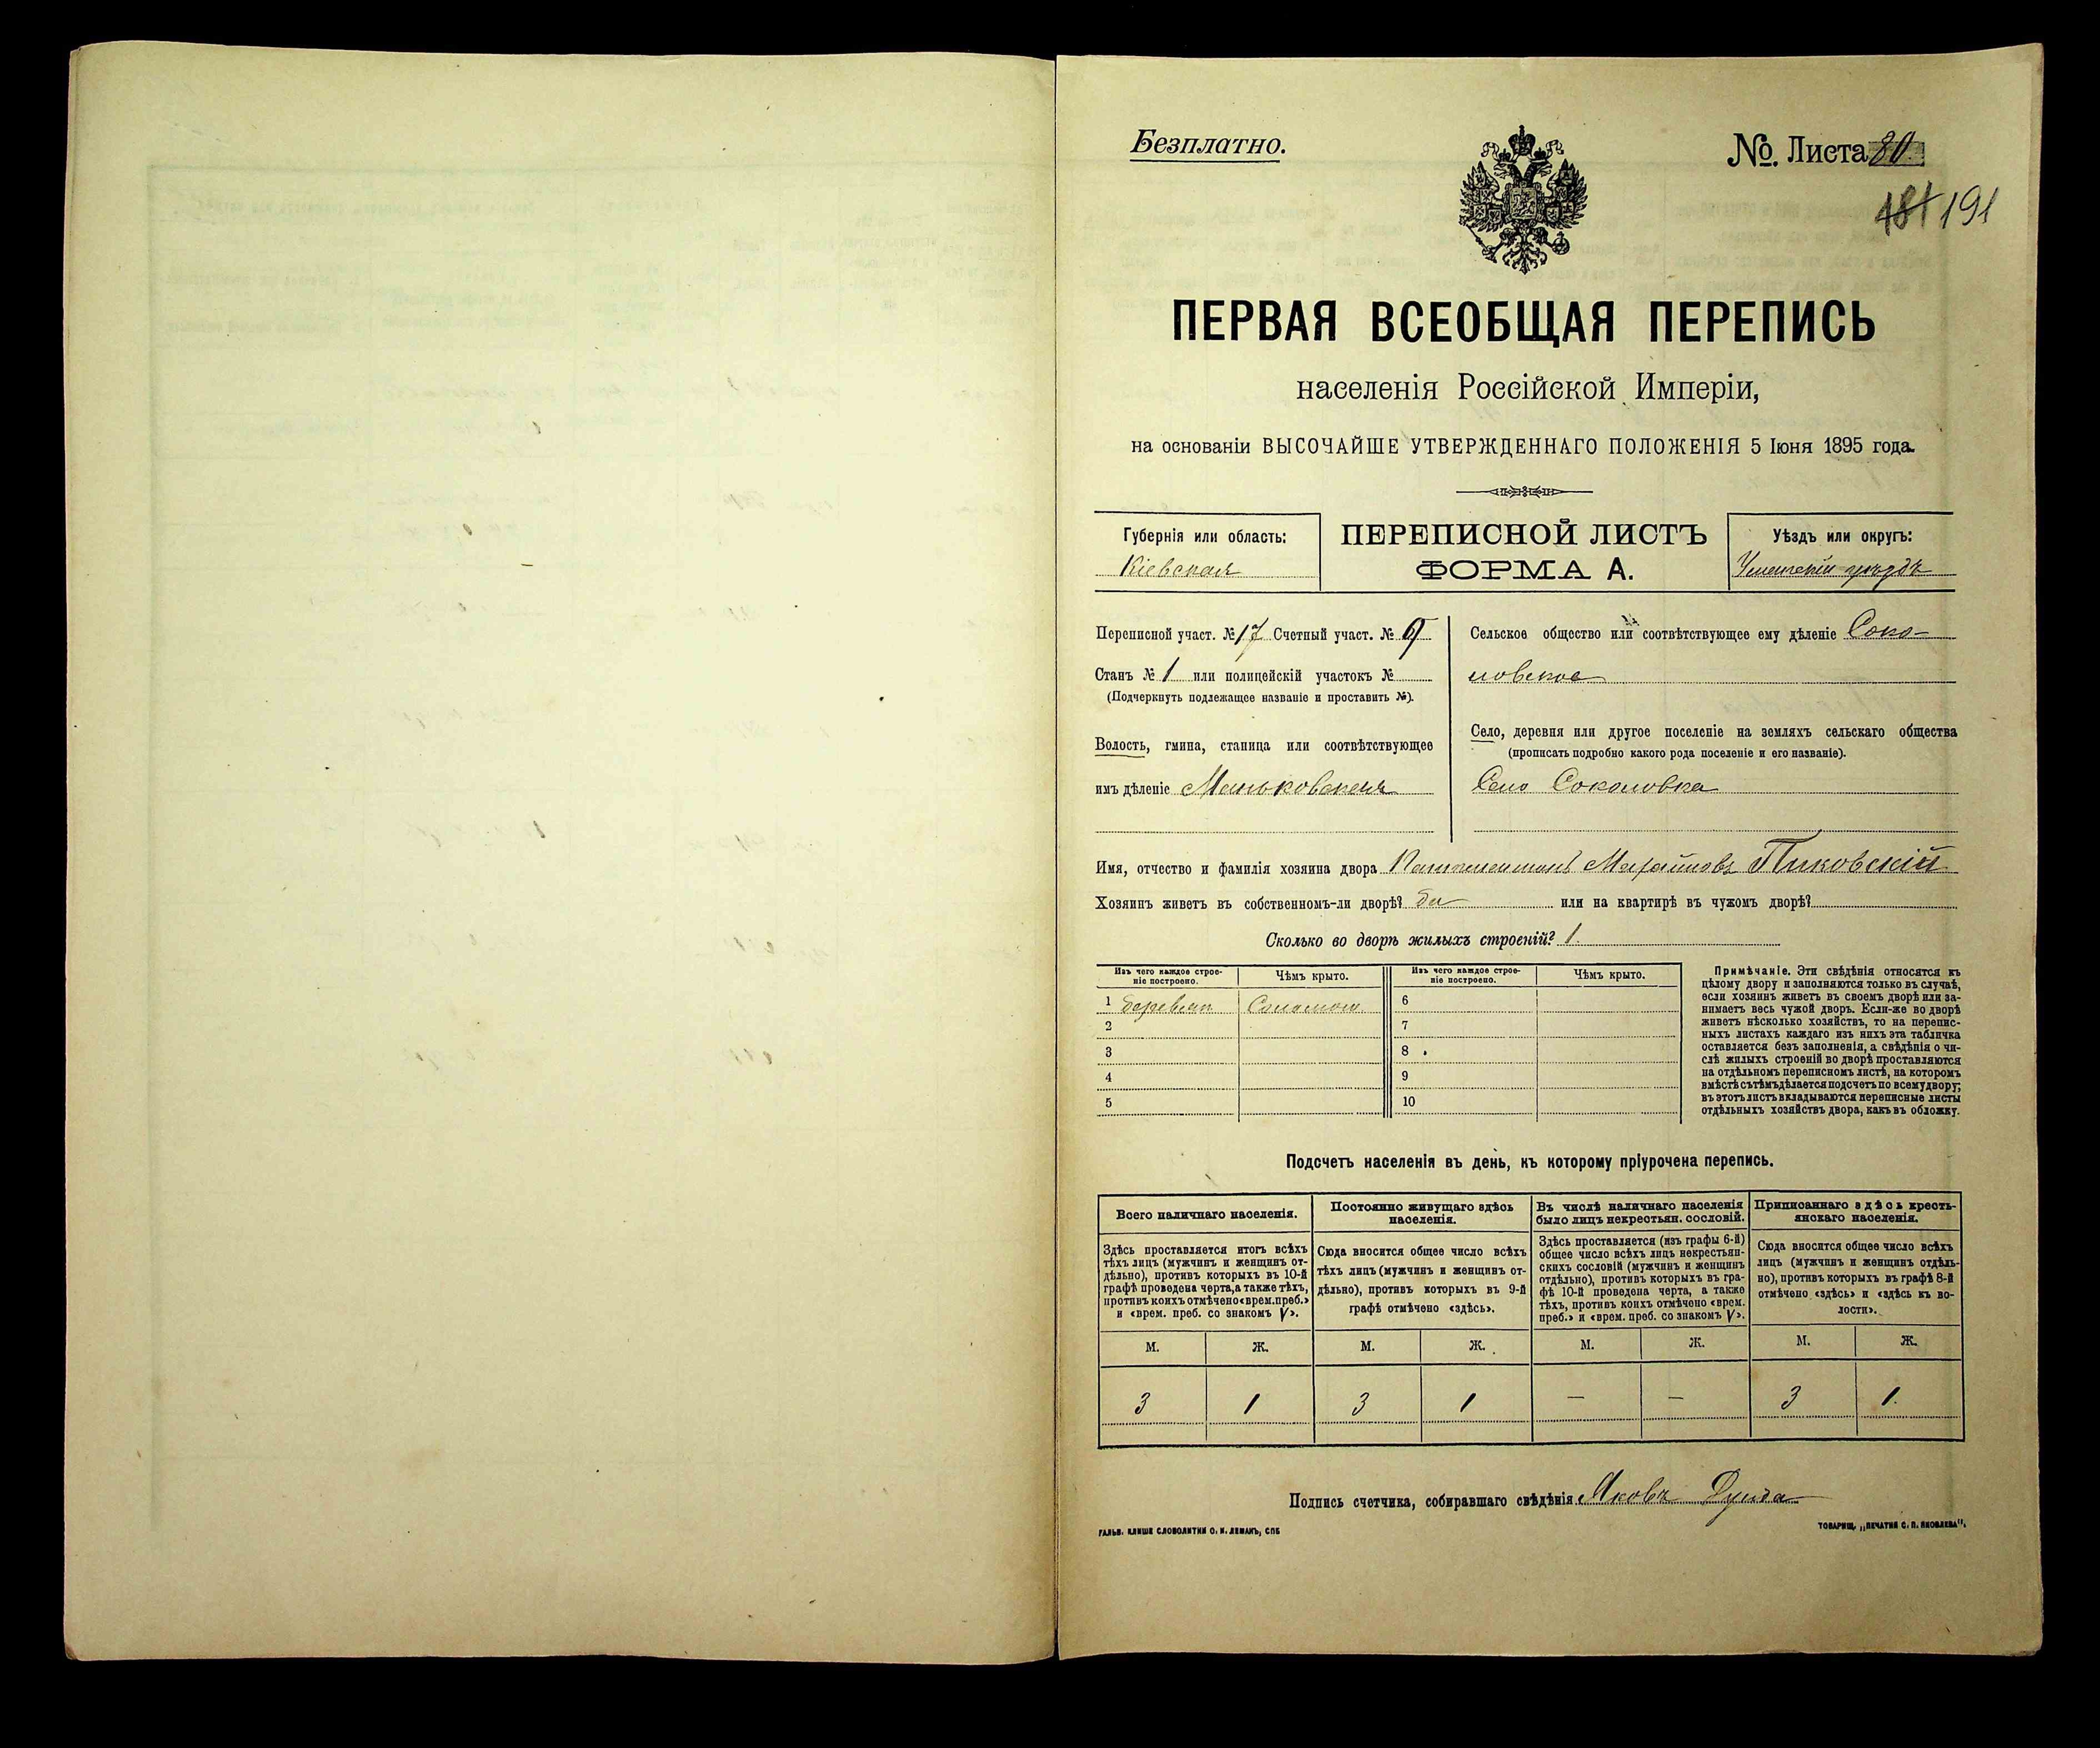 Безплатно.
№. Листа 80
181 191
ПЕРВАЯ ВСЕОБЩАЯ ПЕРЕПИСЬ
населенія Россійской Имперіи,
на основаніи ВЫСОЧАЙШЕ УТВЕРЖДЕННАГО ПОЛОЖЕНІЯ 5 Іюня 1895 года.
Губернія или область:
Кіевская
ПЕРЕПИСНОЙ ЛИСТЪ
ФОРМА А.
Уѣздъ или округъ:
Уманскій уѣздъ
Переписной участ. № 17 Счетный участ. № 9
Станъ № 1 или полицейскій участокъ №
(Подчеркнуть подлежащее названіе и проставить №).
Волость, гмина, станица или соотвѣтствующее
имъ дѣленіе Маньковская
Сельское общество или соотвѣтствующее ему дѣленіе Соко-
ловское
Село, деревня или другое поселеніе на земляхъ сельскаго общества
(прописать подробно какого рода поселеніе и его названіе).
Село Соколовка
Имя, отчество и фамилія хозяина двора Константинъ Михайловъ Пиковскій
Хозяинъ живетъ въ собственномъ-ли дворѣ? да или на квартирѣ въ чужомъ дворѣ?
Сколько во дворѣ жилыхъ строеній? 1.
Изъ чего каждое строе-
ніе построено.
Чѣмъ крыто.
Изъ чего каждое строе-
ніе построено.
Чѣмъ крыто.
1 деревян Соломою 6
2 7
3 8
4 9
5 10
Примѣчаніе. Эти свѣдѣнія относятся къ
цѣлому двору и заполняются только въ случаѣ,
если хозяинъ живетъ въ своемъ дворѣ или за-
нимаетъ весь чужой дворъ. Если-же во дворѣ
живетъ нѣсколько хозяйствъ, то на перепис-
ныхъ листахъ каждаго изъ нихъ эта табличка
оставляется безъ заполненія, а свѣдѣнія о чи-
слѣ жилыхъ строеній во дворѣ проставляются
на отдѣльномъ переписномъ листѣ, на которомъ
вмѣстѣ съ тѣмъ дѣлается подсчетъ по всему двору;
въ этотъ листъ вкладываются переписные листы
отдѣльныхъ хозяйствъ двора, какъ въ обложку.
Подсчетъ населенія въ день, къ которому пріурочена перепись.
Всего наличнаго населенія.
Здѣсь проставляется итогъ всѣхъ
тѣхъ лицъ (мужчинъ и женщинъ от-
дѣльно), противъ которыхъ въ 10-й
графѣ проведена черта, а также тѣхъ,
противъ коихъ отмѣчено «врем. преб.»
и «врем. преб. со знакомъ V».
Постоянно живущаго здѣсь
населенія.
Сюда вносится общее число всѣхъ
тѣхъ лицъ (мужчинъ и женщинъ от-
дѣльно), противъ которыхъ въ 9-й
графѣ отмѣчено «здѣсь».
Въ числѣ наличнаго населенія
было лицъ некрестьян. сословій.
Здѣсь проставляется (изъ графы 6-й)
общее число всѣхъ лицъ некрестьян-
скихъ сословій (мужчинъ и женщинъ
отдѣльно), противъ которыхъ въ гра-
фѣ 10-й проведена черта, а также
тѣхъ, противъ коихъ отмѣчено «врем.
преб.» и «врем. преб. со знакомъ V».
Приписаннаго здѣсь кресть-
янскаго населенія.
Сюда вносится общее число всѣхъ
лицъ (мужчинъ и женщинъ отдѣль-
но), противъ которыхъ въ графѣ 8-й
отмѣчено «здѣсь» и «здѣсь въ во-
лости».
М. Ж. М. Ж. М. Ж. М. Ж.
3 1 3 1 — — 3 1.
Подпись счетчика, собиравшаго свѣдѣнія Яковъ
ГАЛЬВ. КЛИШЕ СЛОВОЛИТНИ О. И. ЛЕМАНЪ, СПБ
ТОВАРИЩ. „ПЕЧАТНЯ С. П. ЯКОВЛЕВА“.